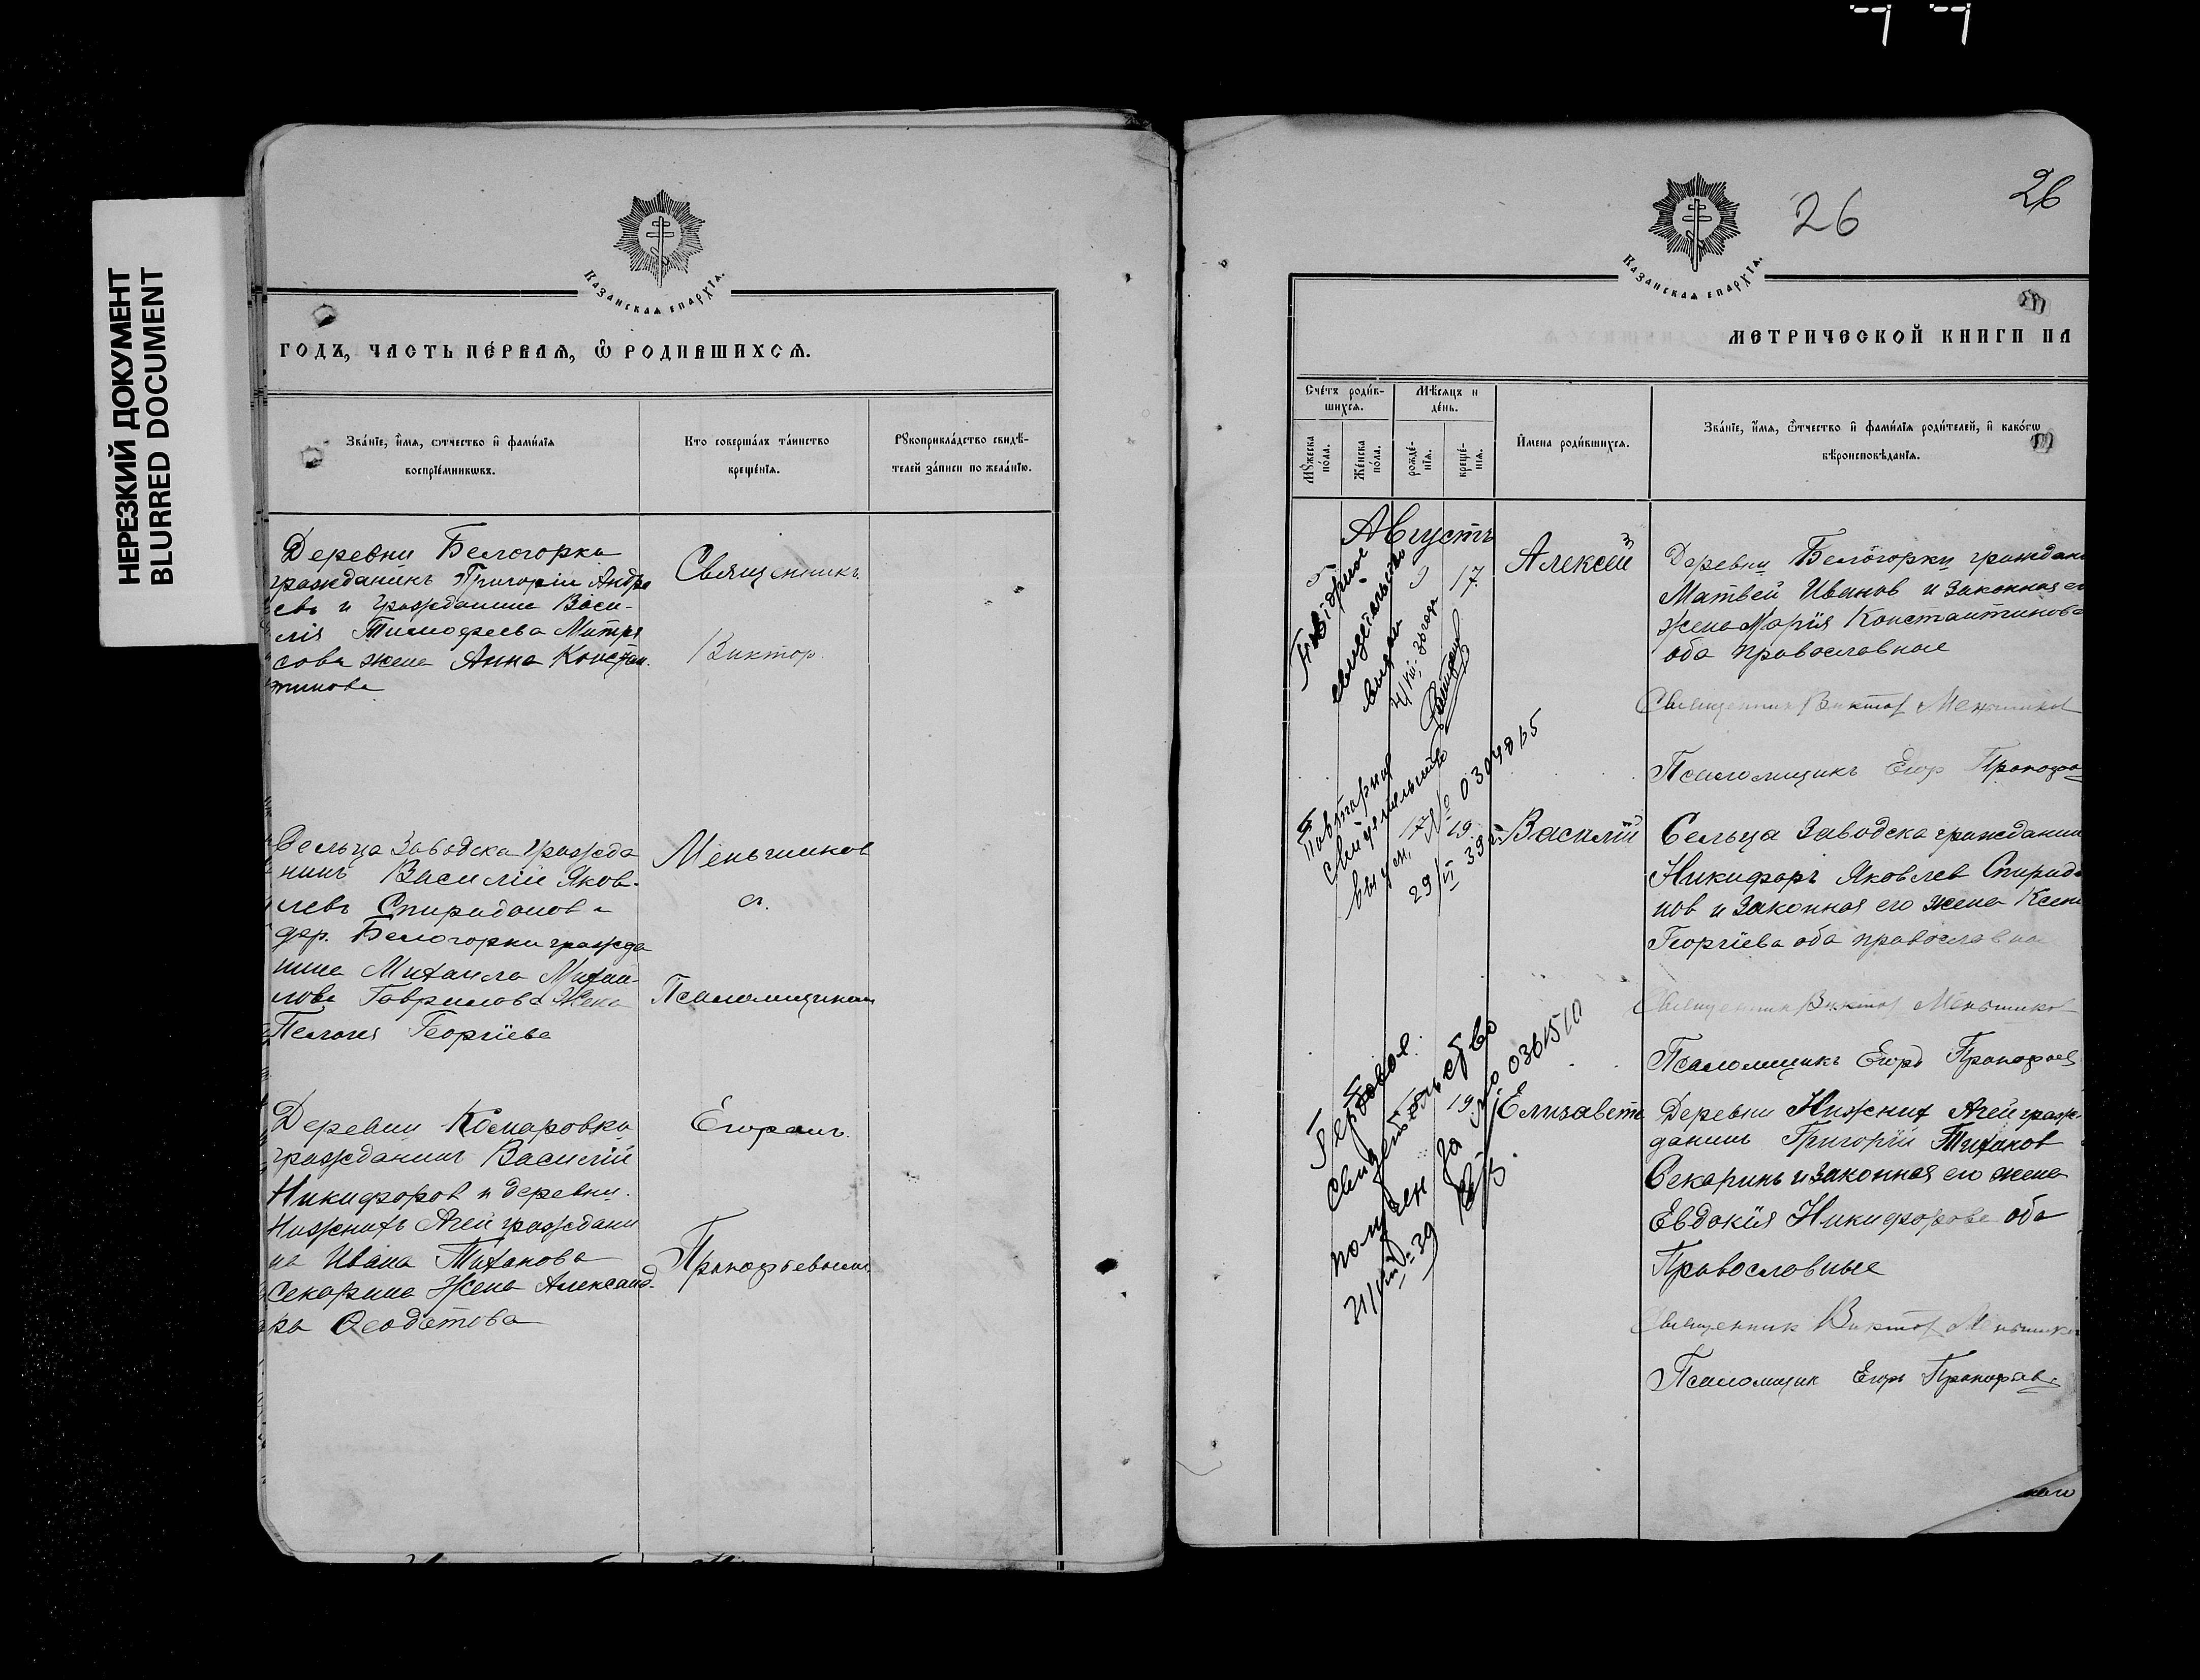 НЕРЕЗКИЙ ДОКУМЕНТ
BLURRED DOCUMENT
КАЗАНСКАЯ ЕПАРХІЯ.
ГОДЪ, ЧАСТЬ ПЕ́РВАЯ, Ѿ РОДИВШИХСЯ.
Зва́нїе, и҆́мя, ѻ҆́тчество и҆ фами́лїя
воспрїе́мникѡвъ.
Кто соверша́лъ та́инство
креще́нїя.
Рꙋкоприкла́дство свидѣ́-
телей за́писи по жела́нїю.
Деревни Белогорки
гражданинъ Григорій Андре
евъ и гражданина Васи-
лія Тимофеева Митря
сова жена Анна Констан
тинова
Священникъ
Виктор
Сельца Заводска гражда
нинъ Василій Яков-
левъ Спиридонов и
дер. Белогорки гражда
нина Михаила Михаи-
лова Гаврилова жена
Пелагея Георгіева
Меньшиков
с.
Псаломщиком
Деревни Комаровки
гражданинъ Василій
Никифоров и деревни
Нижнихъ Агей граждани
на Ивана Тиханова
Секарина Жена Александ-
ра Ѳеодотова
Егоромъ.
Прокофьевымъ
КАЗАНСКАЯ ЕПАРХІЯ.
26
26
МЕТРИЧЕСКОЙ КНИГИ НА
Сче́тъ роди́в-
шихся.
Мѣ́сяцъ и
де́нь.
Мꙋ́жеска
по́ла.
Же́нска
по́ла.
рожде́-
нїя.
креще́-
нїя.
И҆мена роди́вшихся.
Зва́нїе, и҆́мя, ѻ҆́тчество и҆ фами́лїя роди́телей, и҆ како́гѡ
вѣроисповѣ́данїя.
Августъ
17
Алексей
Деревни Белогорки граждан
Матвей Иванов и законная ег
жена Марія Константинова
оба православные
Священник Виктор Меньшиков
Псаломщикъ Егор Прокофье
Повторное
свидетельство
выдан
4/VIII-30 года
Повторная
свидетельство
выдан, № 0304865
29/VI 39 г.
17
19
Василій
Сельца Заводска гражданин
Никифоръ Яковлев Спиридо
нов и законная его жена Ксен
Георгіева оба православна
Священник Виктор Меньшиков
Псаломщикъ Егоръ Прокофьев
Первое
свидетельство
получен за № 0361510
21/VIII-39
19
Елизавета
Деревни Нижних Агей граж-
данин Григорій Тиханов
Секаринъ и законная его жена
Евдокія Никифорова оба
Православные
Священник Виктор Меньшиков
Псаломщик Егоръ Прокофьев